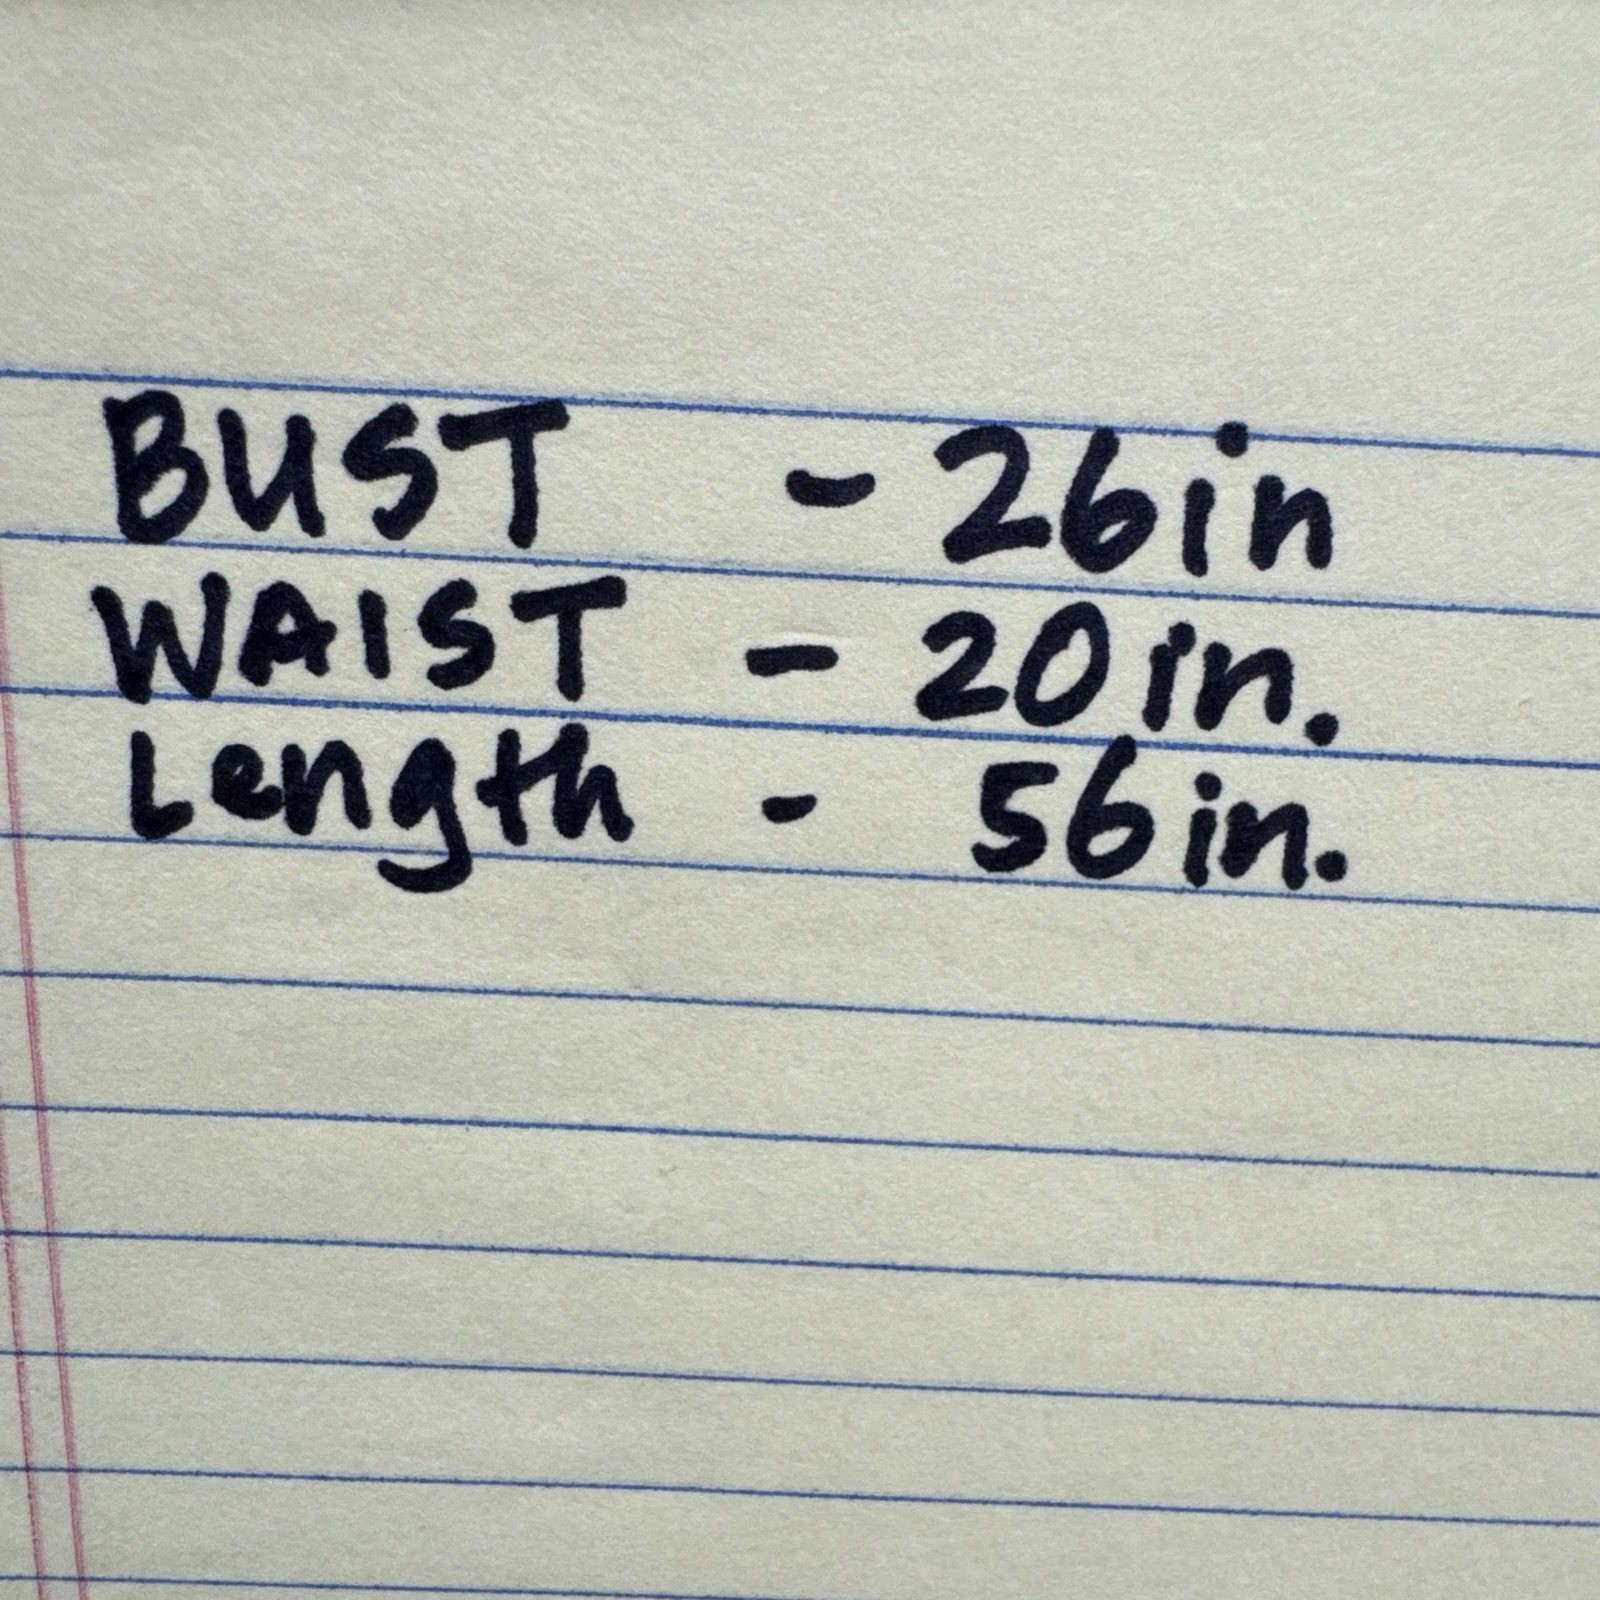 BUST - 26in
WAIST - 20in.
Length - 56in.